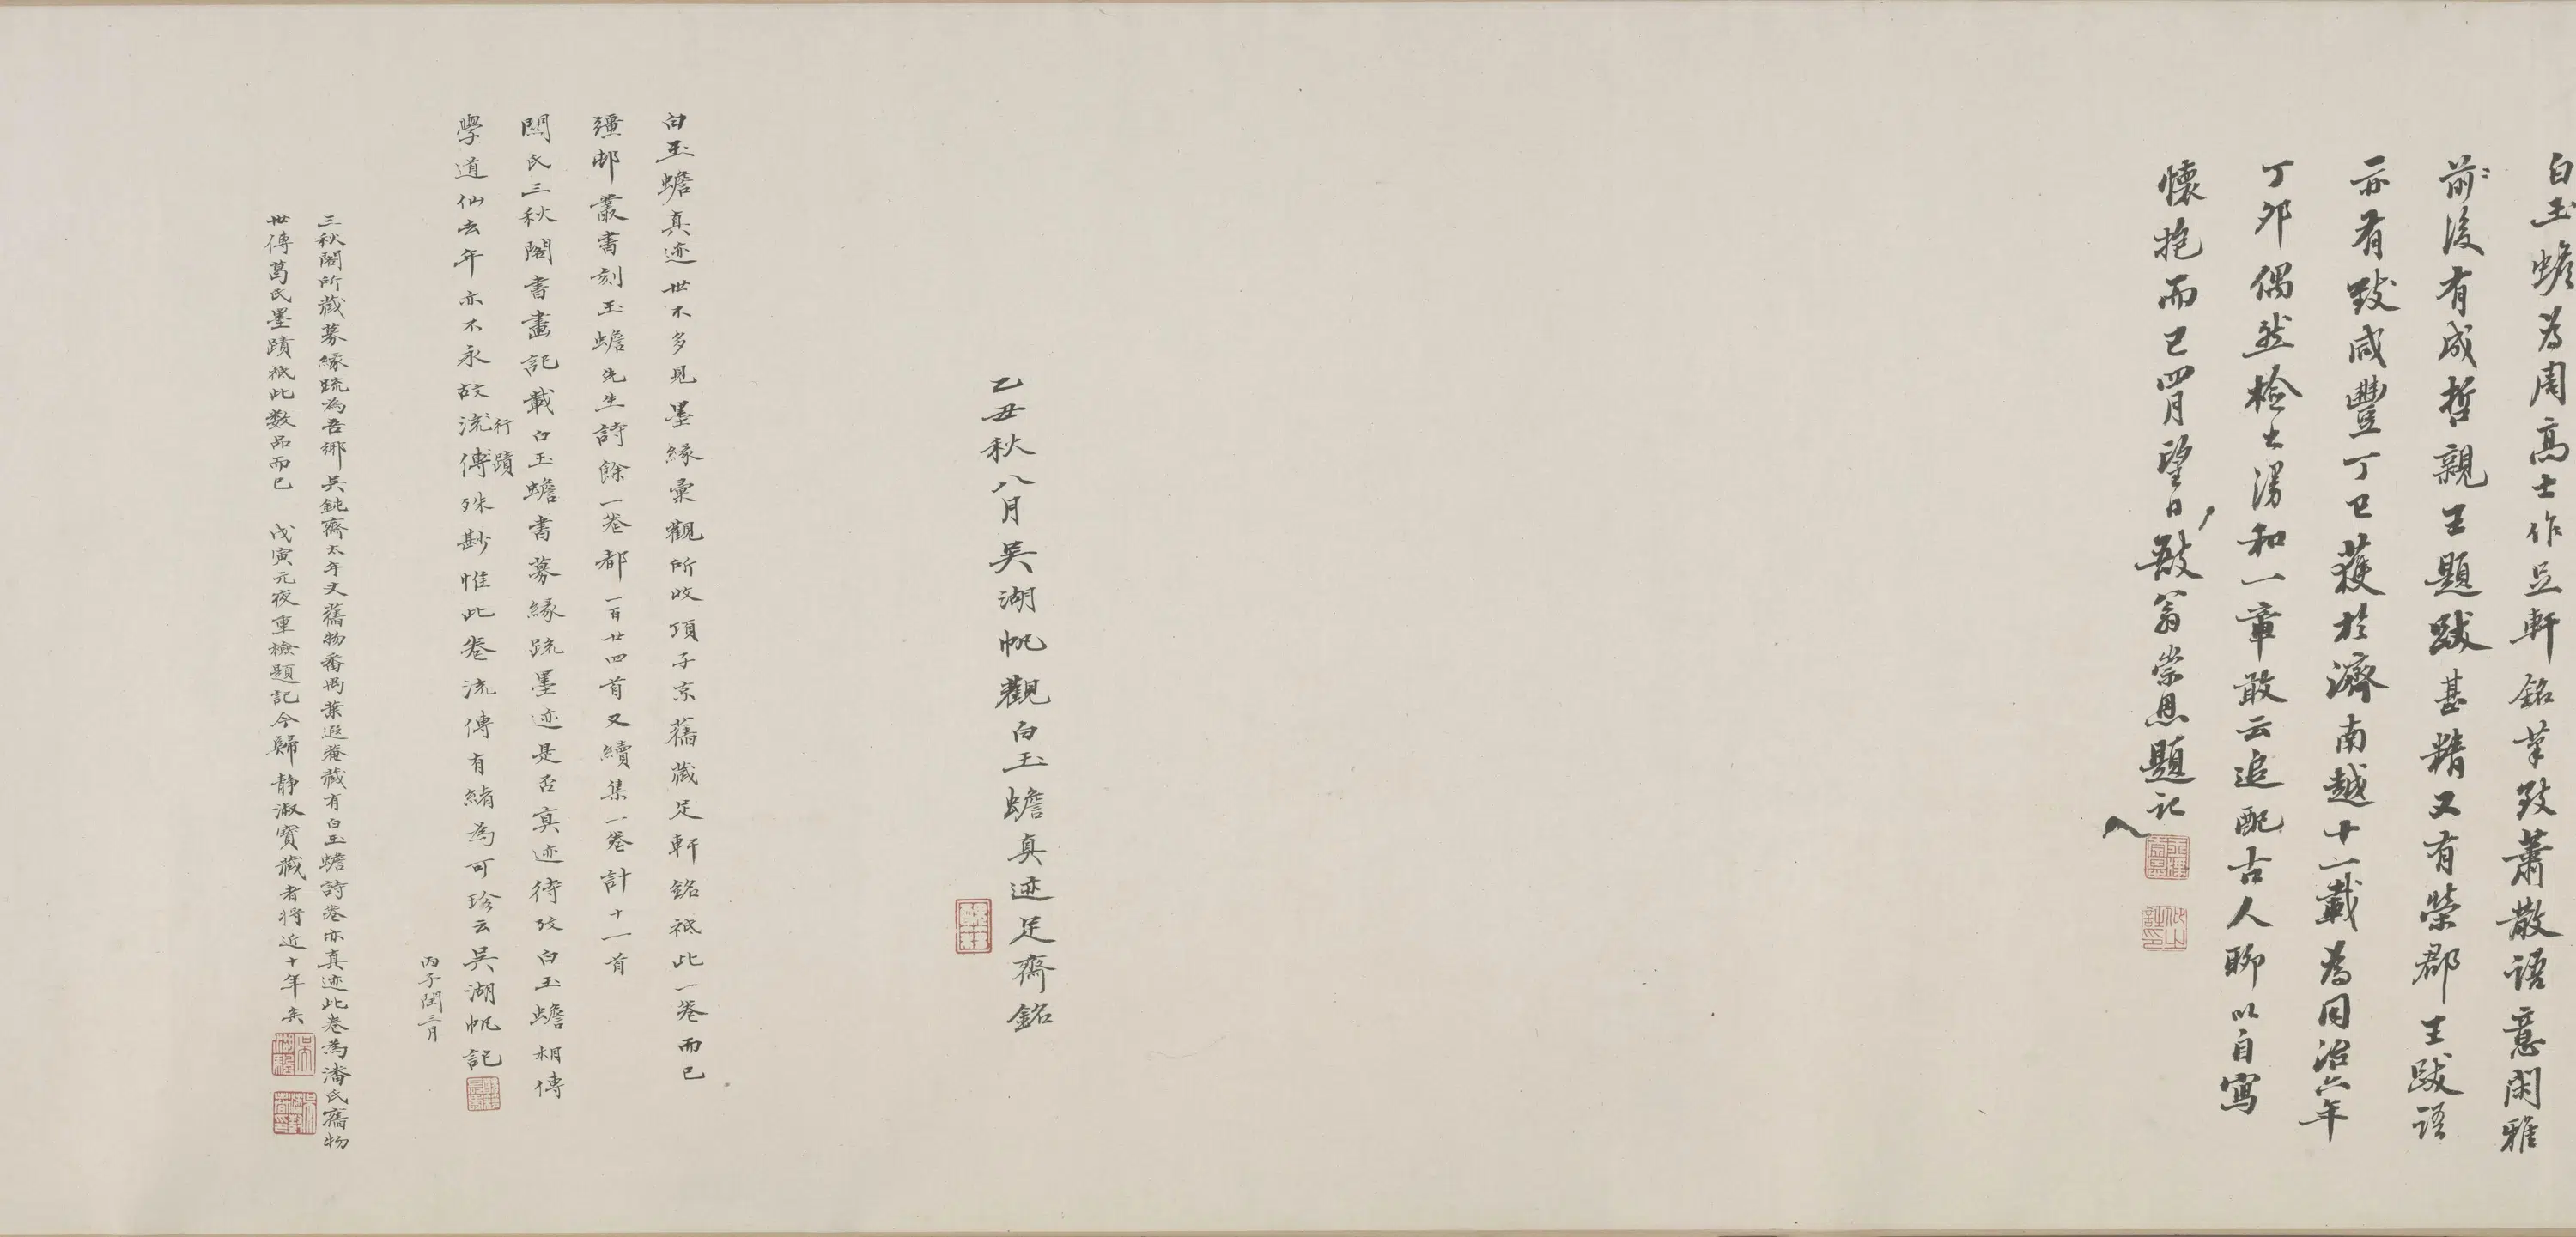 白玉蟾為周高士作足軒銘筆致蕭散語意閑雅
前後有成哲親王題跋甚精又有榮郡王跋語
亦有致咸豐丁巳獲於濟南越十一載為同治六年
丁卯偶然檢出漫和一章敢云追配古人聊以自寫
懷抱而已四月望日敔翁崇恩題記
乙丑秋八月吳湖帆觀白玉蟾真迹足齋銘
白玉蟾真迹世不多見墨緣彙觀所收項子京舊藏足軒銘祇此一卷而已
彊邨叢書刻玉蟾先生詩餘一卷都一百廿四首又續集一卷計十一首
關氏三秋閣書畫記載白玉蟾書募緣疏墨迹是否真迹待攷白玉蟾相傳
學道仙去年亦不永故流傳行蹟殊尠惟此卷流傳有緒為可珍云吳湖帆記
丙子閏三月
三秋閣所藏募緣疏為吾鄉吳鈍齋太年丈舊物番禺葉遐菴藏有白玉蟾詩卷亦真迹此卷為潘氏舊物
世傳葛氏墨蹟祇此数品而已 戊寅元夜重檢題記今歸靜淑寶藏者將近十年矣